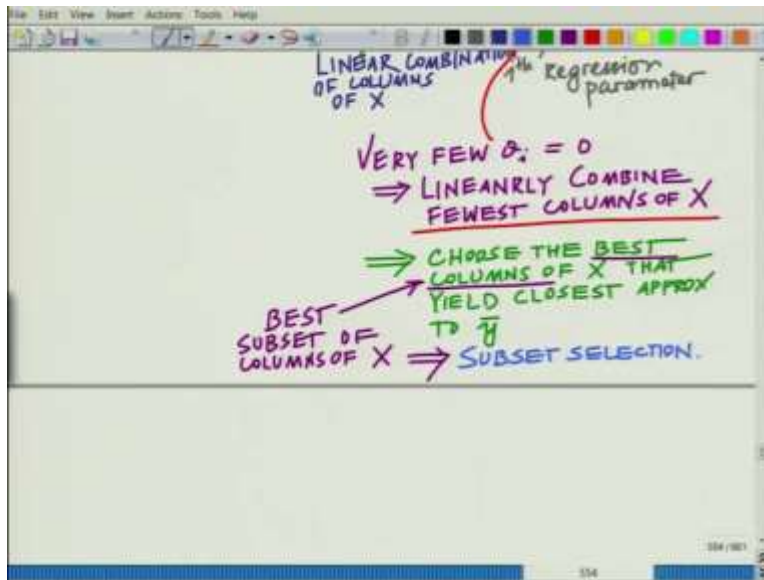 File Edit View Insert Actions Tools Help
B I
LINEAR COMBINATION
OF COLUMNS
OF X
Regression
parameter
VERY FEW θi = 0
⇒ LINEANRLY COMBINE
FEWEST COLUMNS OF X
⇒ CHOOSE THE BEST
COLUMNS OF X THAT
YIELD CLOSEST APPROX
TO y̅
BEST
SUBSET OF
COLUMNS OF X ⇒ SUBSET SELECTION.
554